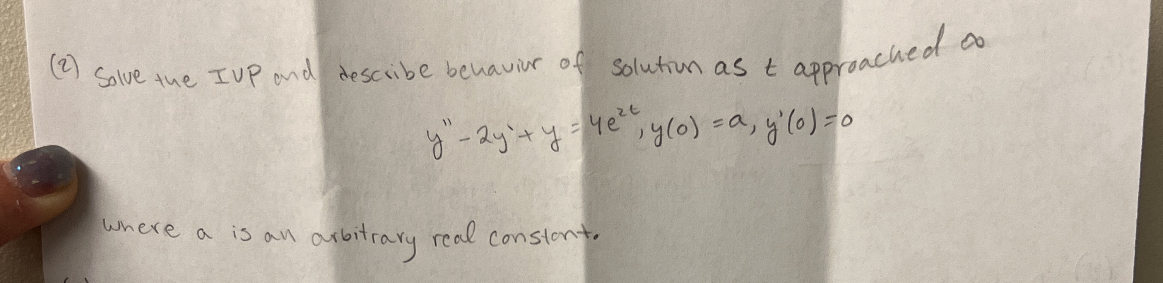 (2) Solve the IVP and describe behavior of solution as t approached ∞
y'' - 2y' + y = 4e^{2t}, y(0) = a, y'(0) = 0
where a is an arbitrary real constant.